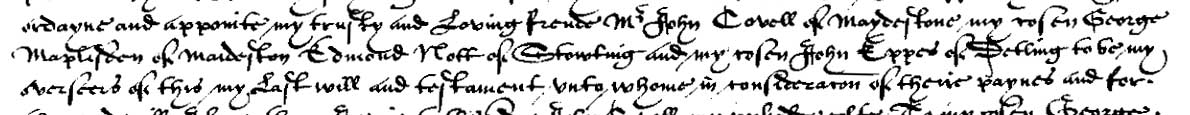 ordayne and appointe my trusty and Loving frende Mr John Covell of Maydestone my cosen George
Maplisden of Maideston Edmund Nott of Stowting and my cosen John Eppes of Detling to be my
overseers of this my Last will and testament unto whome in consideracon of theire paynes and for
George